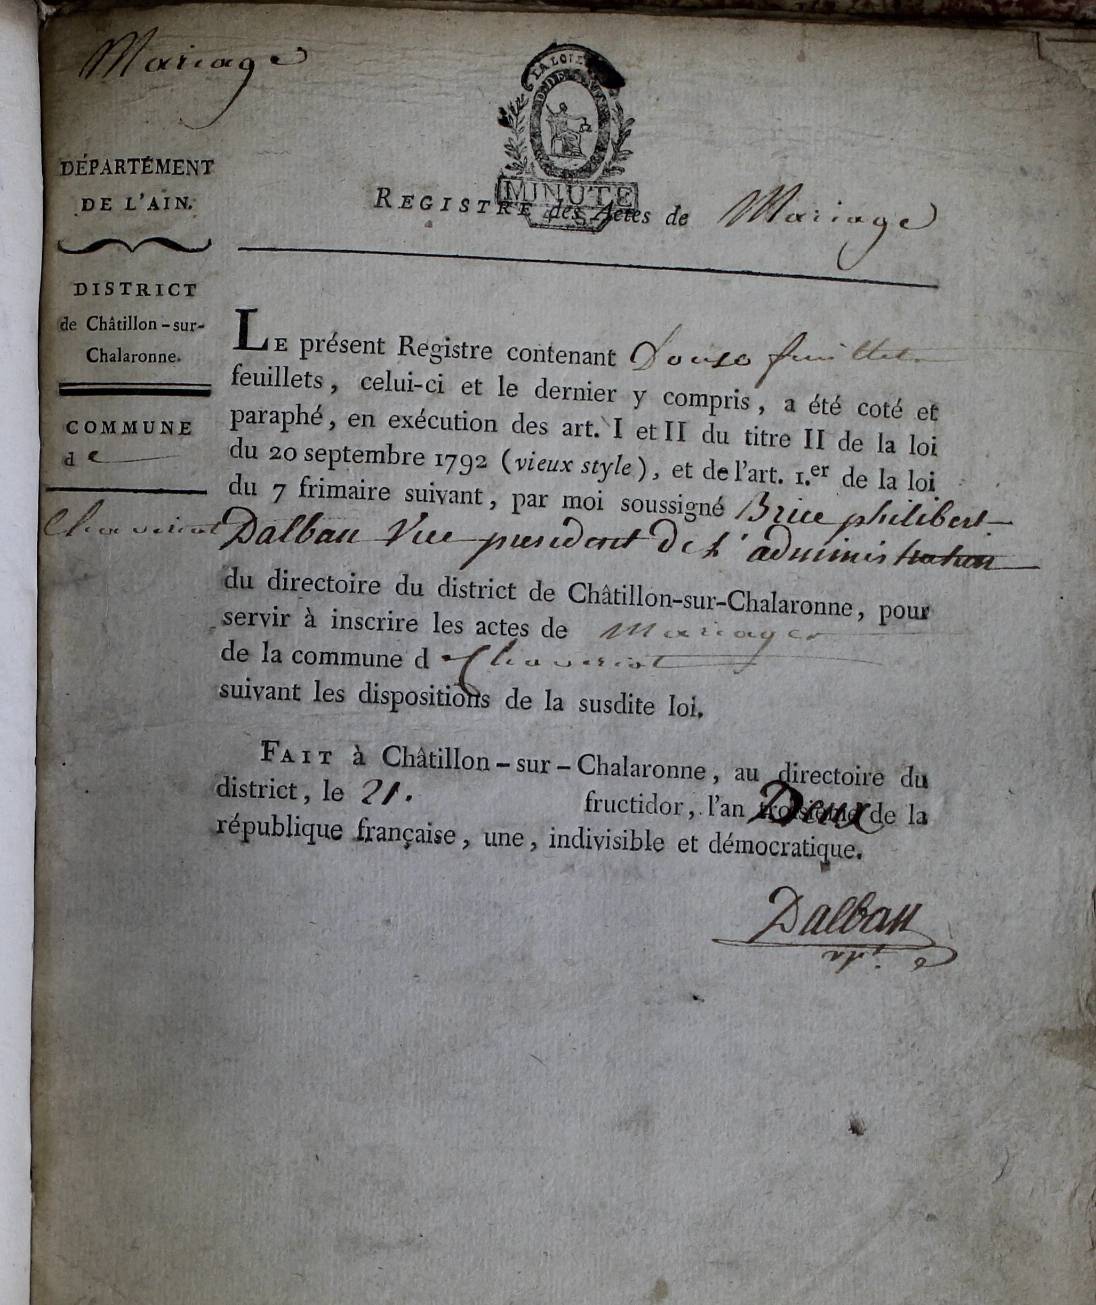 Mariage
LA LOI
MINUTE
DÉPARTÉMENT
DE L'AIN.
REGISTRE des Actes de Mariage
DISTRICT
de Châtillon-sur-
Chalaronne.
COMMUNE
de
Chaveriat
LE présent Registre contenant Douse feuillet
feuillets, celui-ci et le dernier y compris, a été coté et
paraphé, en exécution des art. I et II du titre II de la loi
du 20 septembre 1792 (vieux style), et de l'art. 1.er de la loi
du 7 frimaire suivant, par moi soussigné Brice philibert
Dalbau Vice president de L'administration
du directoire du district de Châtillon-sur-Chalaronne, pour
servir à inscrire les actes de Mariages
de la commune d Chaveriat
suivant les dispositions de la susdite loi.
FAIT à Châtillon-sur-Chalaronne, au directoire du
district, le 21. fructidor, l'an troisieme Deux de la
république française, une, indivisible et démocratique.
Dalbau